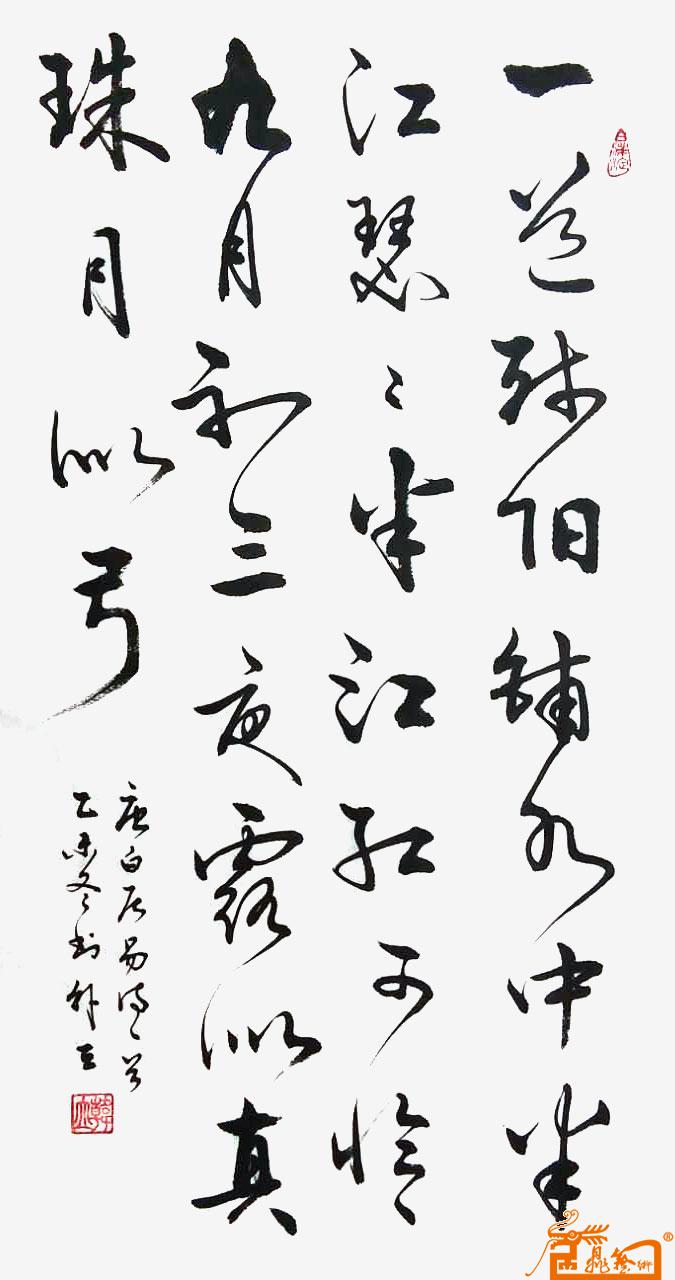 一道残阳铺水中半
江瑟々半江红可怜
九月初三夜露似真
珠月似弓
唐白居易诗一首
乙未冬